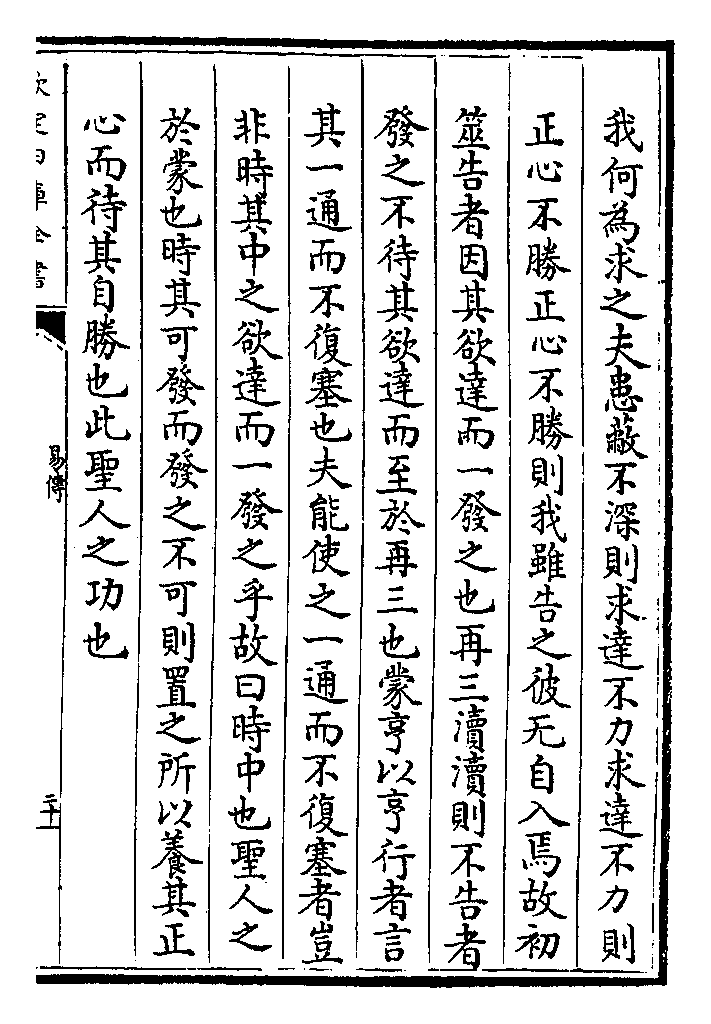 我何為求之夫患蔽不深則求達不力求達不力則
正心不勝正心不勝則我雖告之彼无自入焉故初
筮告者因其欲達而一發之也再三瀆瀆則不告者
發之不待其欲達而至於再三也蒙亨以亨行者言
其一通而不復塞也夫能使之一通而不復塞者豈
非時其中之欲達而一發之乎故曰時中也聖人之
於蒙也時其可發而發之不可則置之所以養其正
心而待其自勝也此聖人之功也
欽定四庫全書
易傳
二十一